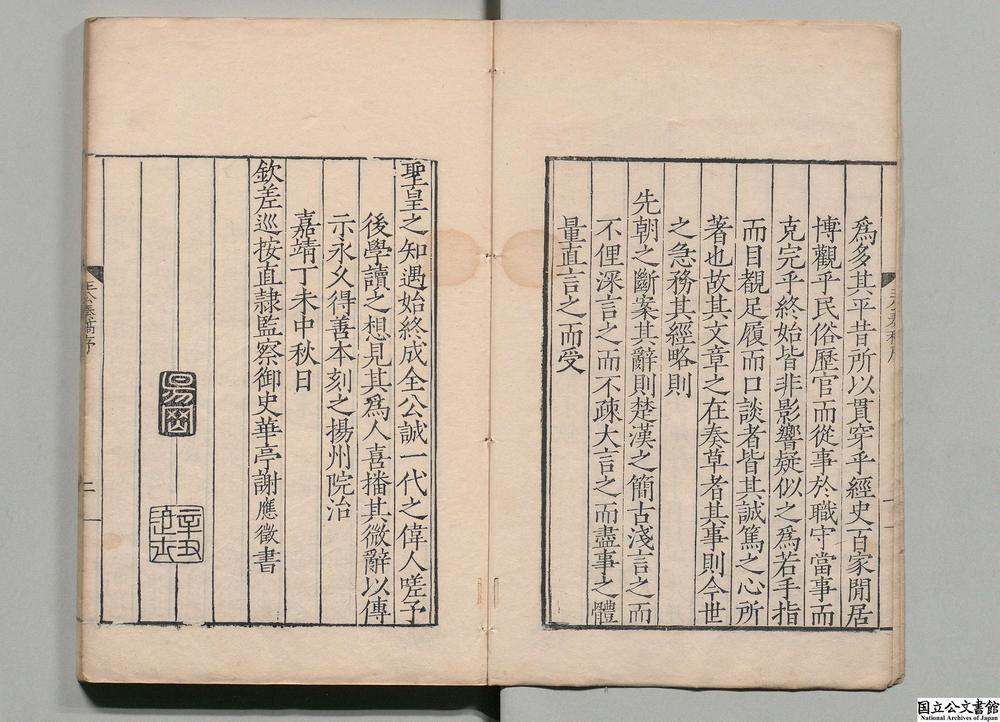 爲多其平昔所以貫穿乎經史百家閒居
博觀乎民俗歷官而從事於職守當事而
克完乎終始皆非影響疑似之爲若手指
而目覩足履而口談者皆其誠篤之心所
著也故其文章之在奏草者其事則今世
之急務其經略則
先朝之斷案其辭則楚漢之簡古淺言之而
不俚深言之而不疎大言之而盡事之體
量直言之而受
聖皇之知遇始終成全公誠一代之偉人嗟予
後學讀之想見其爲人喜播其微辭以傳
示永久得善本刻之揚州院治
嘉靖丁未中秋日
欽差巡按直隷監察御史華亭謝應徵書
王公奏稿序
二
国立公文書館
National Archives of Japan